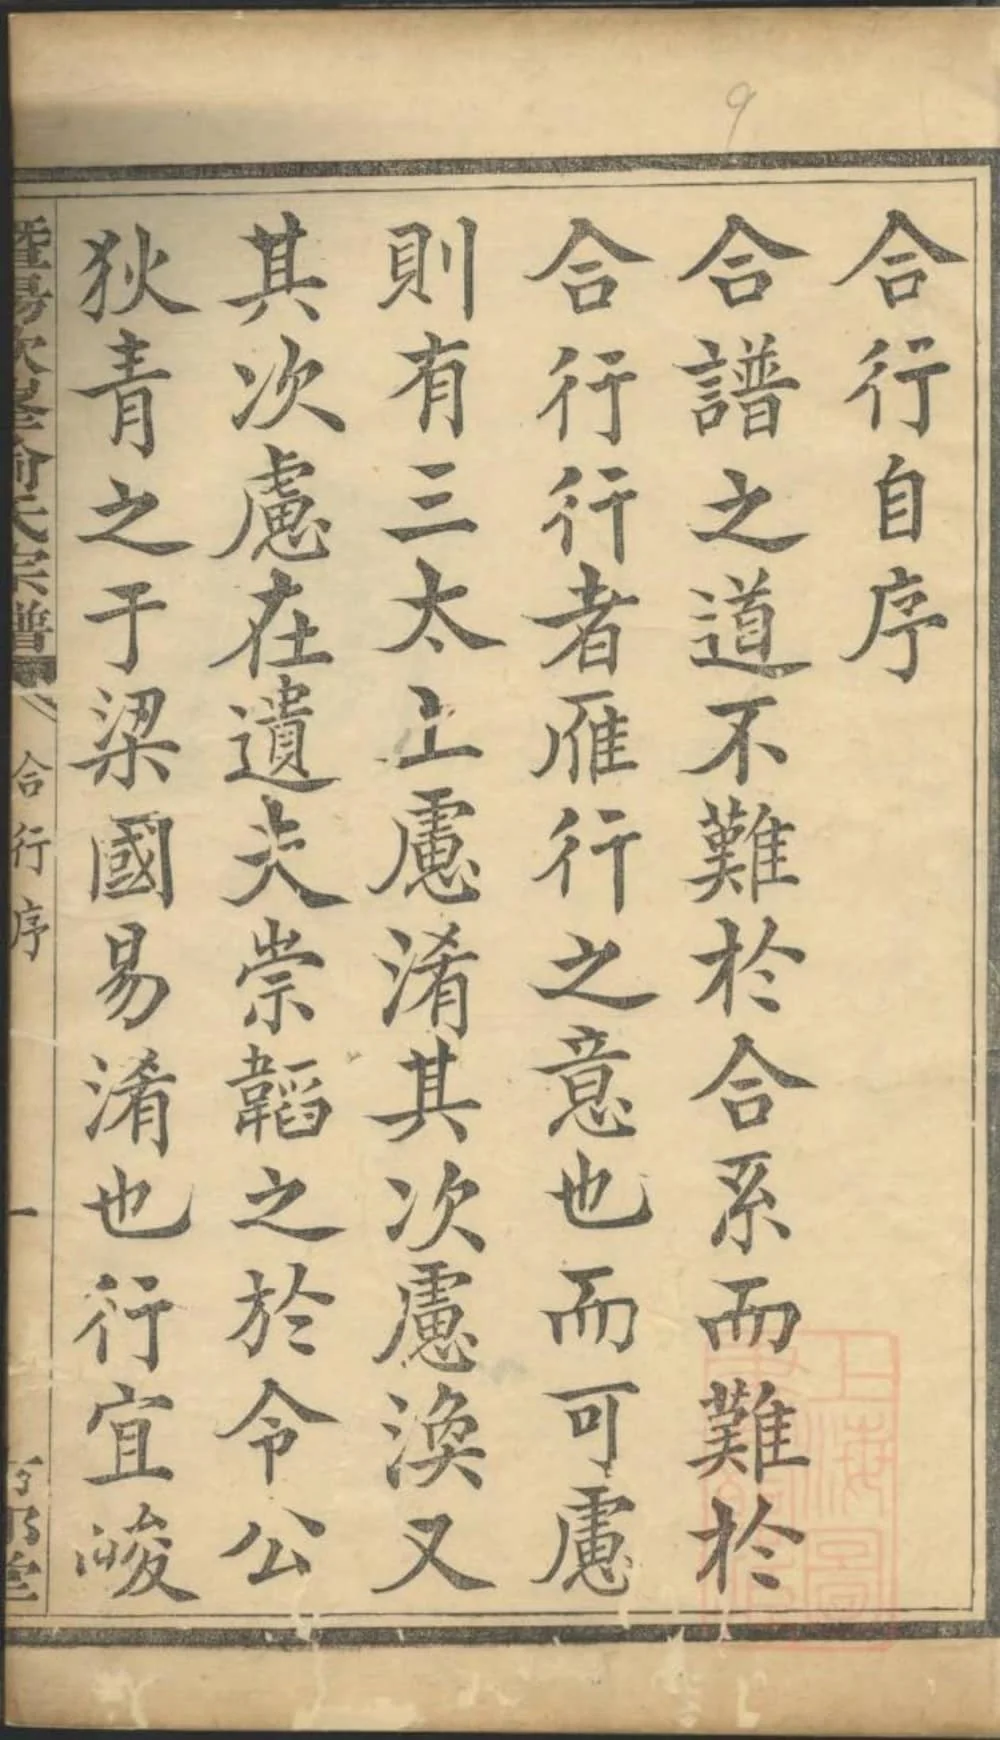 9
合行自序
合譜之道不難於合系而難於
合行行者雁行之意也而可慮
則有三太上慮淆其次慮渙又
其次慮在遺夫崇韜之於令公
狄青之于梁國易淆也行宜峻
暨陽次峯俞氏宗譜
合行序
一
堂
上海圖